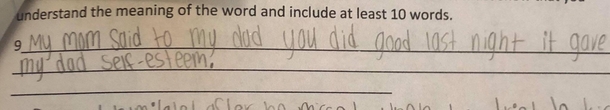 understand the meaning of the word and include at least 10 words.
9 My mom said to my dad you did good last night it gave
my dad self-esteem.